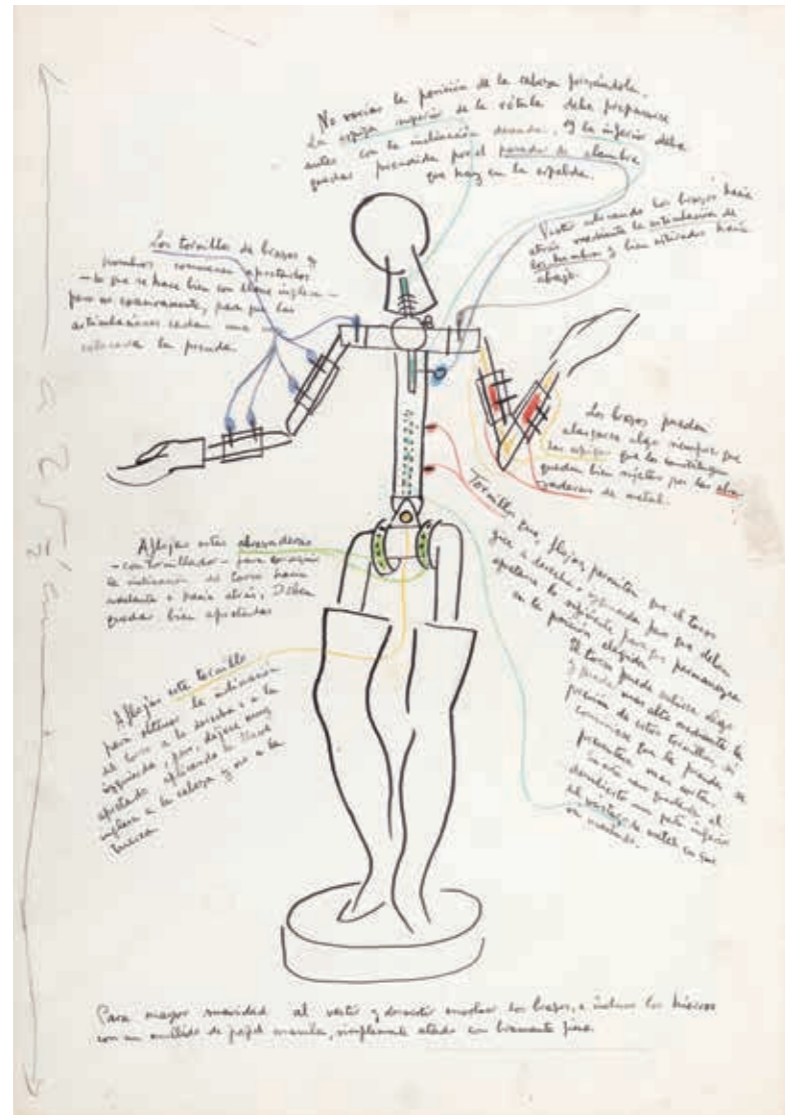 No variar la posición de la cabeza forzándola.
La espiga superior de la rótula debe prepararse
antes con la inclinación deseada. Y la inferior debe
quedar prendida por el pasador de alambre
que hay en la espalda.
Vestir ubicando los brazos hacia
atrás mediante la articulación de
los hombros y bien estirados hacia
abajo.
Los tornillos de brazos y
hombros conviene apretarlos
— lo que se hace bien con llave inglesa —
pero no excesivamente, para que las
articulaciones cedan una vez
colocada la prenda.
Los brazos pueden
alargarse algo siempre que
las espigas que lo constituyen
queden bien sujetas por las abra-
zaderas de metal.
Aflojar estas abrazaderas
— con tornillador — para conseguir
la inclinación del torso hacia
adelante o hacia atrás. Deben
quedar bien apretadas
Tornillos que, flojos, permiten que el torso
gire a derecha o izquierda pero que deben
apretarse lo suficiente para que permanezca
en la posición elegida.
El torso puede subirse algo
y quedar mas alto mediante la
presion de estos tornillos, si
conviniese que la prenda se
presentara mas corta.
al
descubierto un poco inferior
el vastago de metal en que
va montado.
Aflojar este tornillo
para obtener la inclinación
del torso a la derecha o a la
izquierda, pero, déjese muy
apretado aplicando la llave
inglesa a la cabeza y no a la
tuerca
Para mayor suavidad al vestir y desvestir envolver los brazos, e incluso los húmeros
con un mullido de papel manila, simplemente atado con bramante fino.